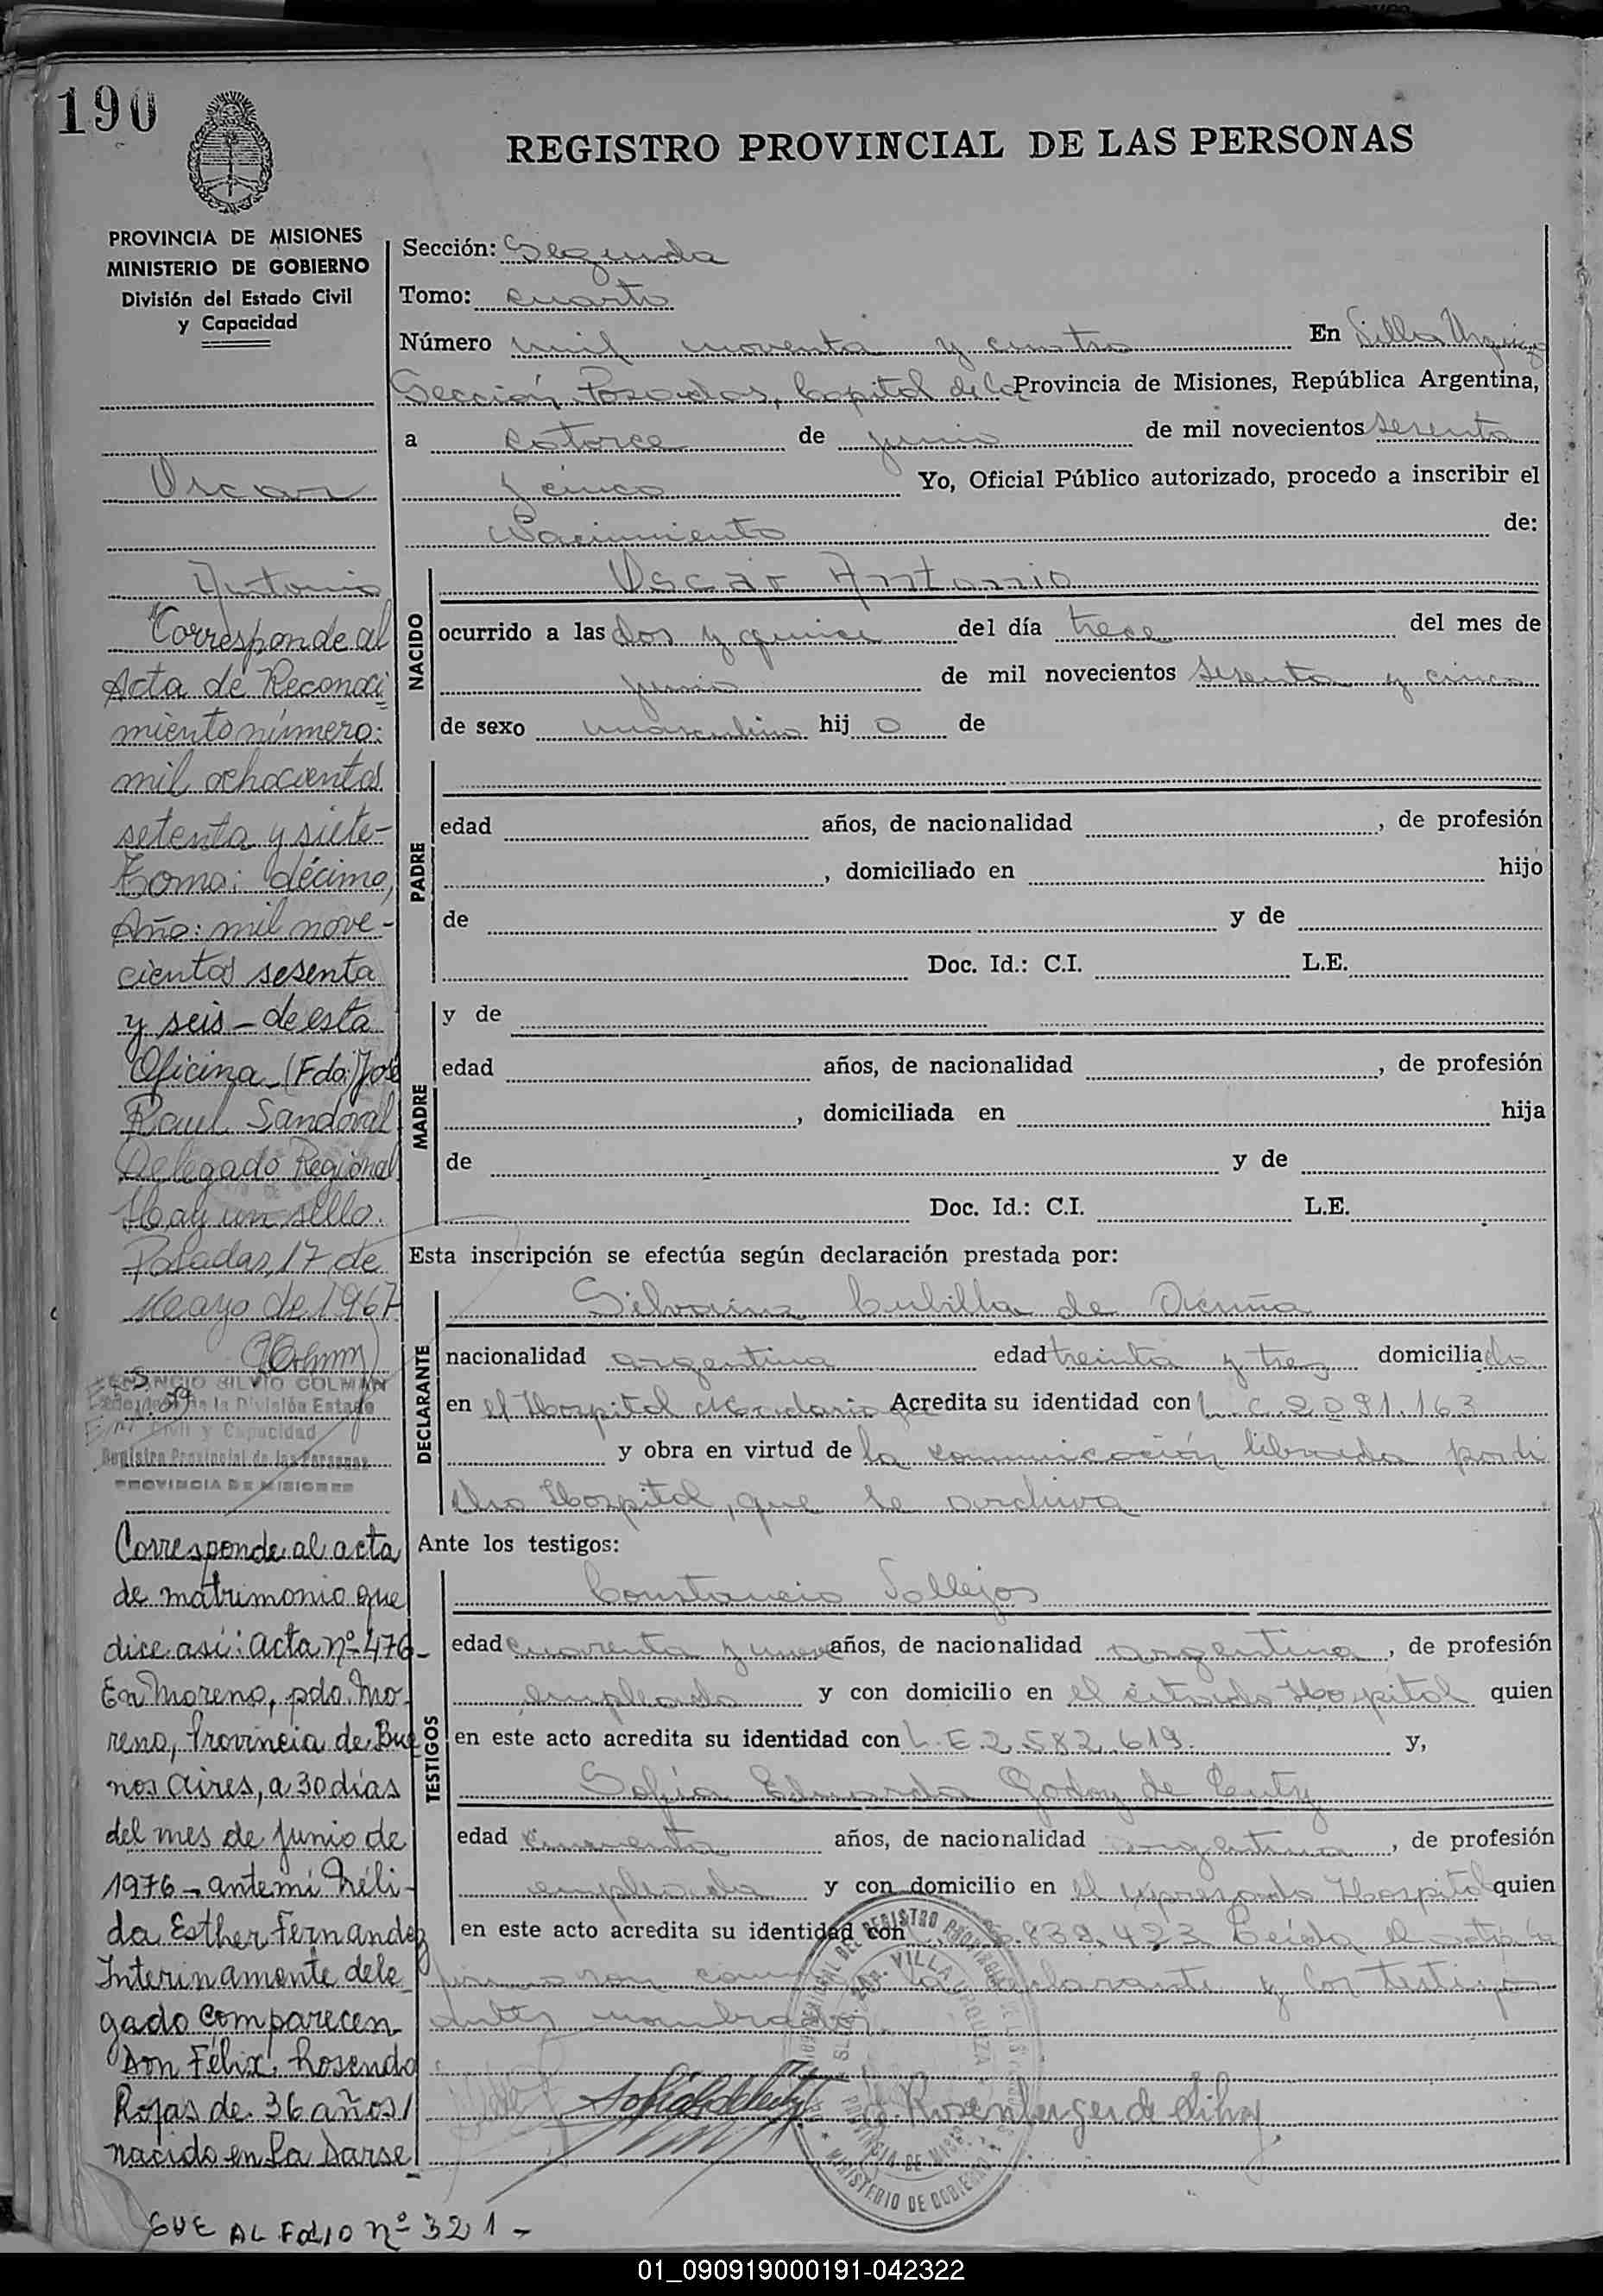 190
REGISTRO PROVINCIAL DE LAS PERSONAS
PROVINCIA DE MISIONES
MINISTERIO DE GOBIERNO
División del Estado Civil
y Capacidad
Oscar
Antonio
Corresponde al
Acta de Reconoci
miento número:
mil ochocientos
setenta y siete-
Tomo: décimo,
Año: mil nove-
cientos sesenta
y seis - de esta
Oficina - (Fdo.) José
Raul Sandoval
Delegado Regional
Hay un sello.
Posadas, 17 de
Mayo de 1967
SILVIO COLMAN
de la División Estado
Civil y Capacidad
Registro Provincial de las Personas
PROVINCIA DE MISIONES
Corresponde al acta
de matrimonio que
dice así: acta nº 476-
En Moreno, pdo. Mo-
reno, Provincia de Bue
nos Aires, a 30 días
del mes de Junio de
1976 - ante mí Néli-
da Esther Fernandez
Interinamente dele
gado Comparecen
Don Félix Rosendo
Rojas de 36 años,
nacido en La Darse
Sección: Segunda
Tomo: cuarto
Número mil noventa y cuatro En Villa Urquiza
Sección Posadas, Capital de la Provincia de Misiones, República Argentina,
a catorce de junio de mil novecientos sesenta
y cinco Yo, Oficial Público autorizado, procedo a inscribir el
Nacimiento de:
NACIDO
Oscar Antonio
ocurrido a las dos y quince del día trece del mes de
junio de mil novecientos sesenta y cinco
de sexo masculino hij o de
PADRE
edad años, de nacionalidad , de profesión
, domiciliado en hijo
de y de
Doc. Id.: C.I. L.E.
MADRE
y de
edad años, de nacionalidad , de profesión
, domiciliada en hija
de y de
Doc. Id.: C.I. L.E.
Esta inscripción se efectúa según declaración prestada por:
DECLARANTE
Silvarina Cubilla de Acuña
nacionalidad argentina edad treinta y tres domiciliada
en el Hospital Madariaga Acredita su identidad con L.C. 2.091.163
y obra en virtud de la comunicación librada por di
cho Hospital, que se archiva
Ante los testigos:
TESTIGOS
Constancio Vallejos
edad cuarenta y nueve años, de nacionalidad argentina, de profesión
empleado y con domicilio en el citado Hospital quien
en este acto acredita su identidad con L.E 2.582.619. y,
Sofía Eduarda Godoy de
edad años, de nacionalidad argentina, de profesión
empleada y con domicilio en el expresado Hospital quien
en este acto acredita su identidad con .839.423 Leída el acta
la declarante y los testigos
antes nombrados
MINISTERIO DE GOBIERNO
VILLA URQUIZA
PROVINCIA DE MISIONES
Rosenberger de Silva
SIGUE AL FOLIO Nº 321-
01_090919000191-042322